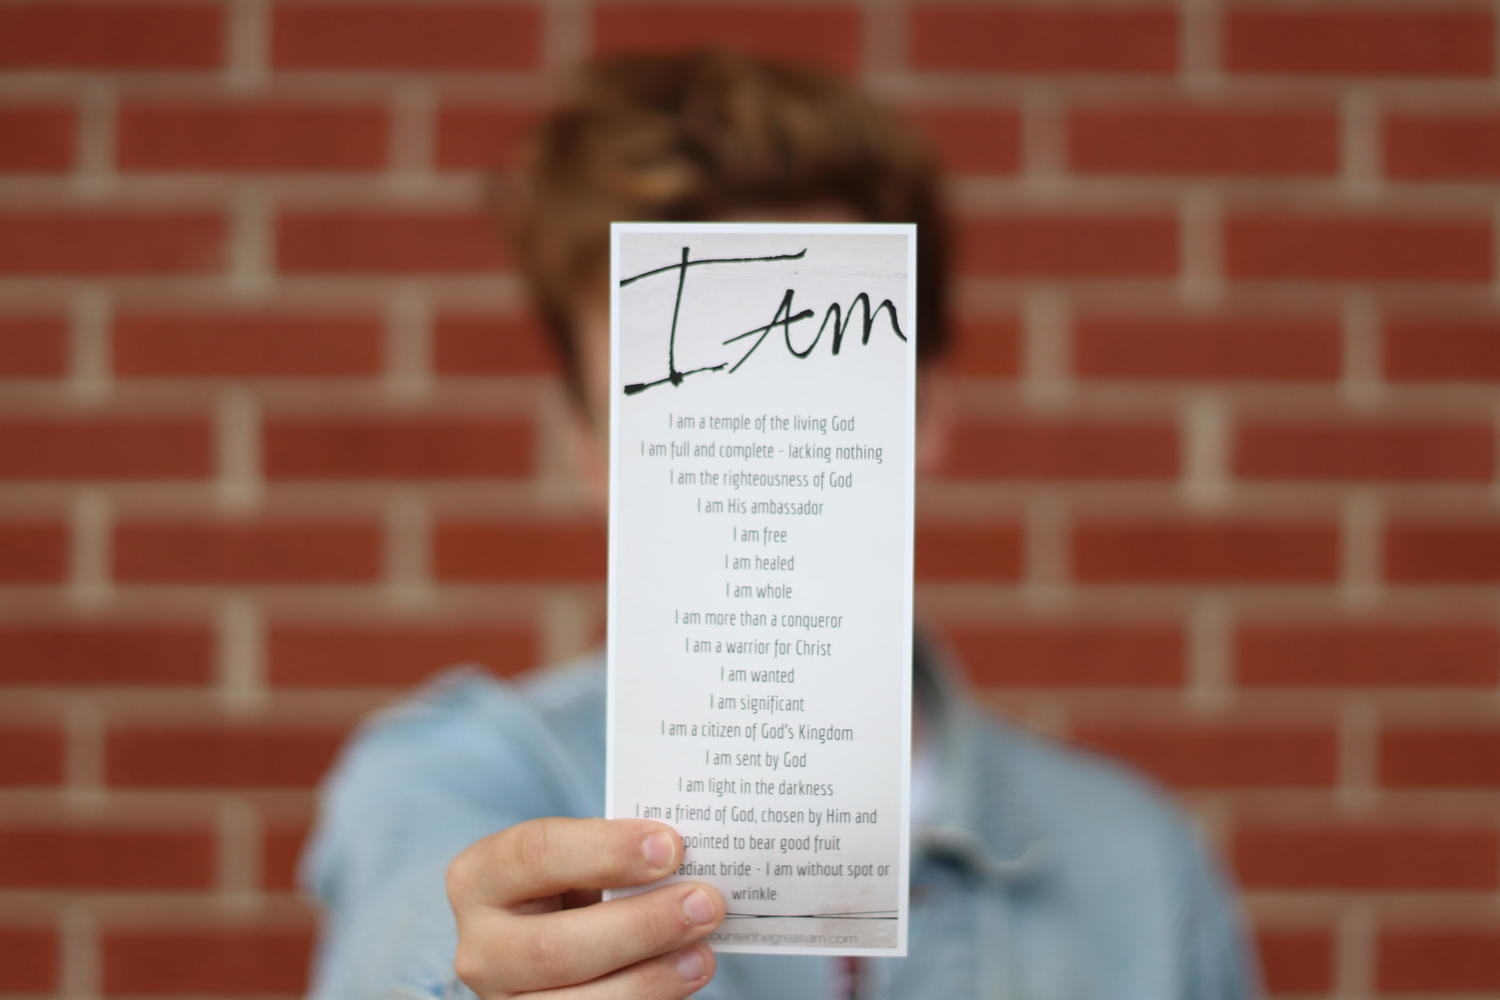 I Am
I am a temple of the living God
I am full and complete - lacking nothing
I am the righteousness of God
I am His ambassador
I am free
I am healed
I am whole
I am more than a conqueror
I am a warrior for Christ
I am wanted
I am significant
I am a citizen of God's Kingdom
I am sent by God
I am light in the darkness
I am a friend of God, chosen by Him and
to bear good fruit
bride - I am without spot or
wrinkle